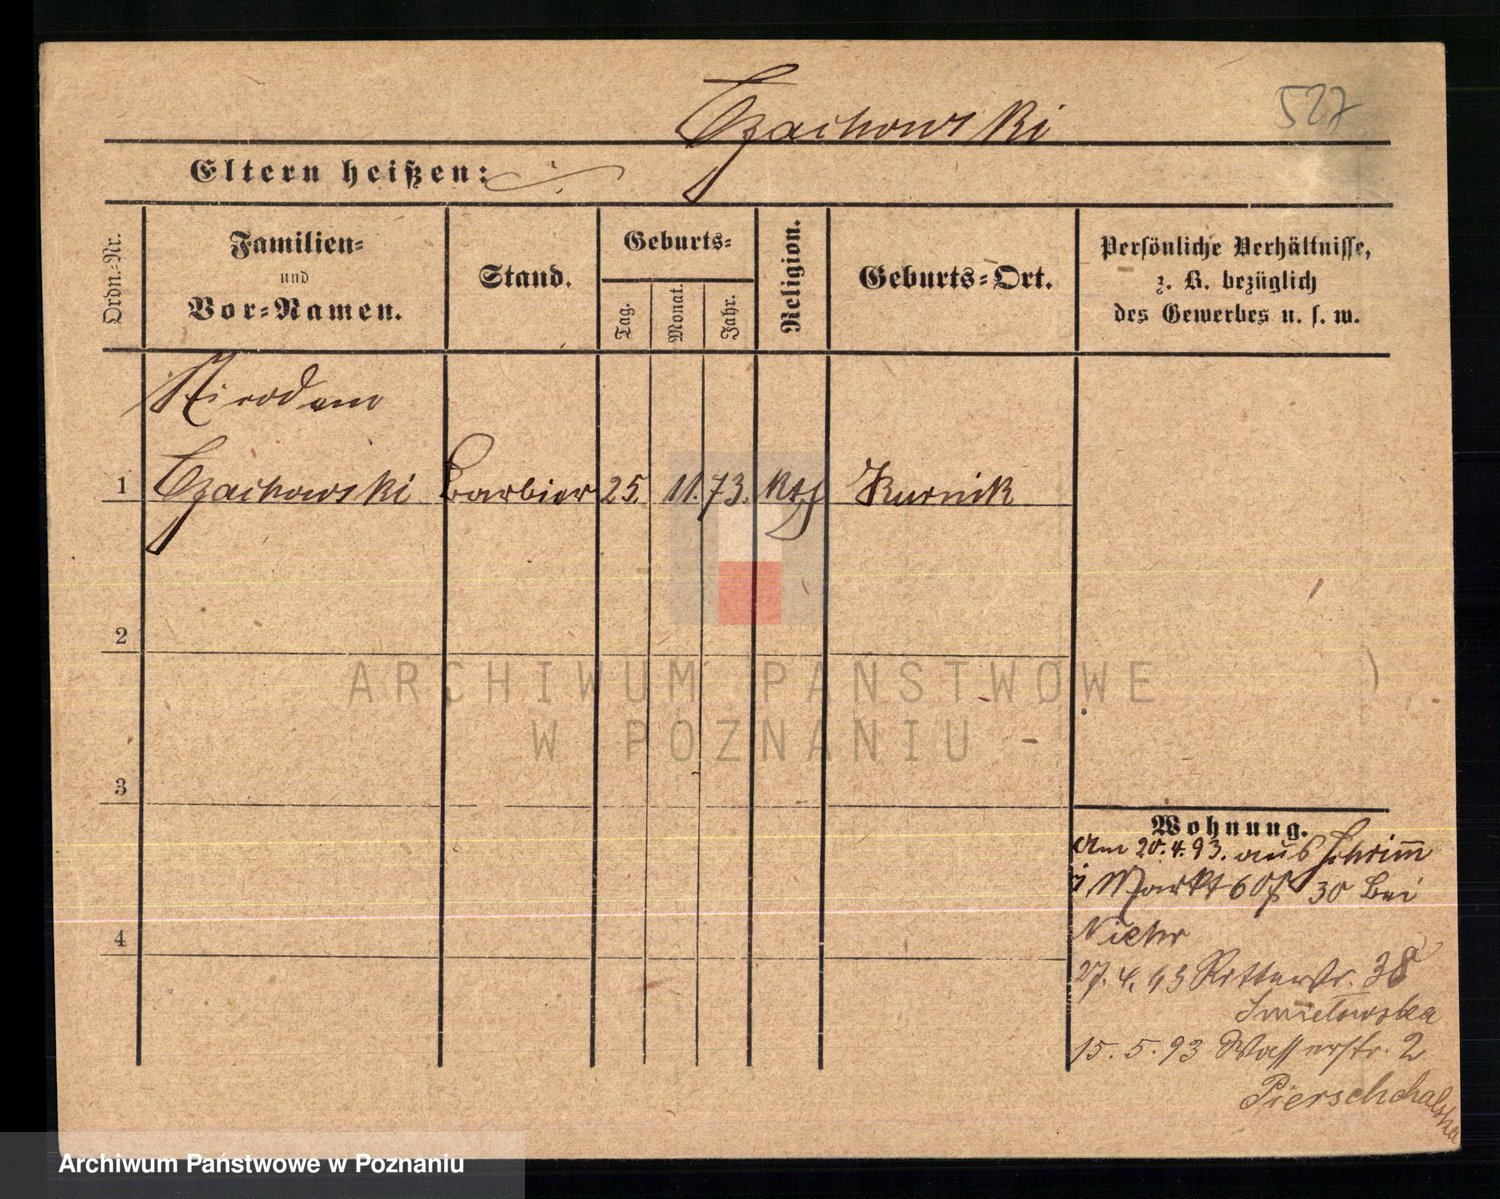 Czachowski
527
Eltern heißen:
Ordn.-Nr.
Familien-
und
Vor-Namen.
Stand.
Geburts-
Tag.
Monat.
Jahr.
Religion.
Geburts-Ort.
Persönliche Verhältnisse,
z. B. bezüglich
des Gewerbes u. s. w.
1
Czachowski Barbier 25. 11. 73. Kurnik
2
ARCHIWUM PAŃSTWOWE
W POZNANIU
3
Wohnung.
Am 20.4.93. aus Schrimm
Markt 60 30 bei
4
27. 4. 93 Ritterstr. 38
Smielowska
15. 5. 93 Wasserstr. 2
Pierschchalska
Archiwum Państwowe w Poznaniu